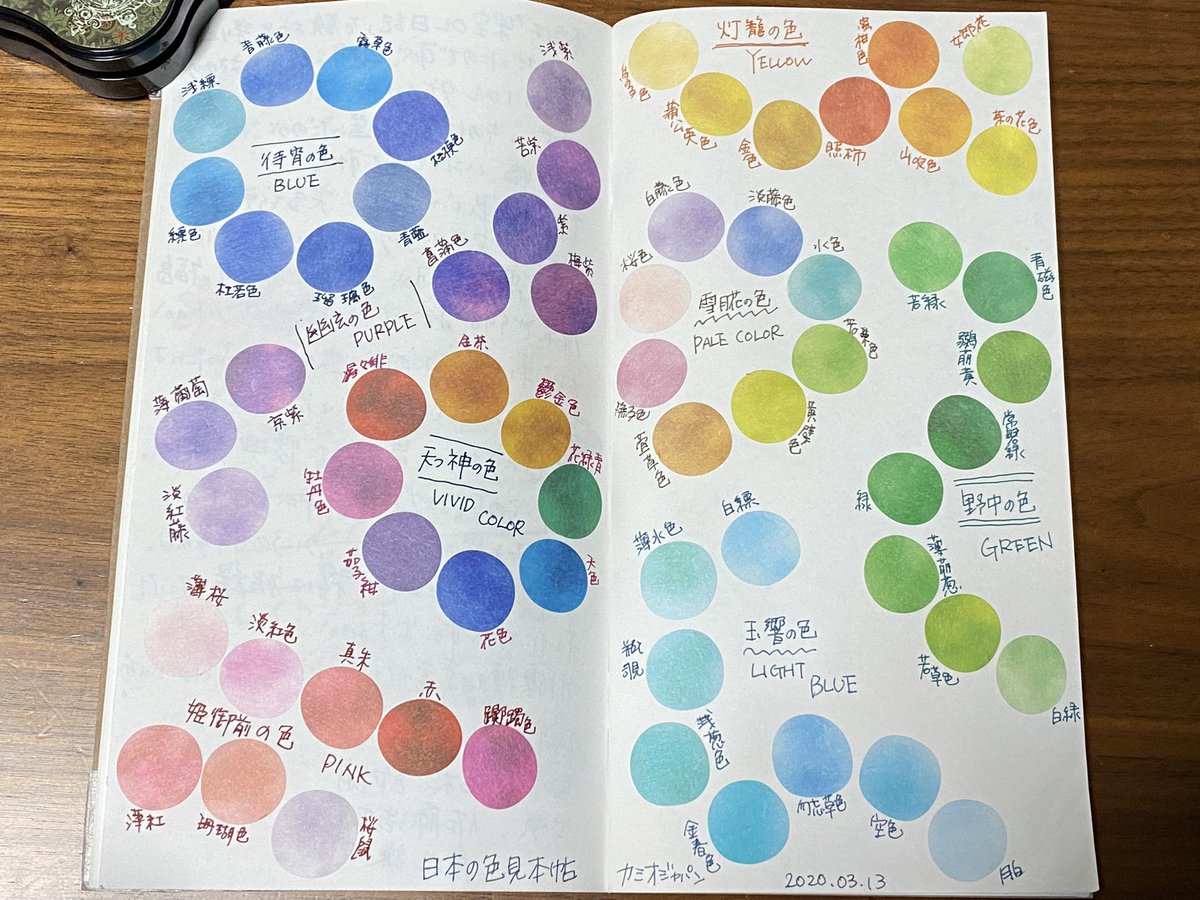 待宵の色
BLUE
浅縹
青藤色
露草色
桔梗色
青藍
瑠璃色
杜若色
縹色
幽玄の色
PURPLE
浅紫
若紫
紫
梅紫
菖蒲色
京紫
薄葡萄
淡紅藤
天つ神の色
VIVID COLOR
猩々緋
金茶
鬱金色
花緑青
天色
花色
茄子紺
牡丹色
姫御前の色
PINK
薄桜
淡紅色
真朱
赤
躑躅色
薄紅
珊瑚色
桜鼠
日本の色見本帖
灯籠の色
YELLOW
蒲公英色
金色
照柿
山吹色
菜の花色
女郎花
雪月花の色
PALE COLOR
白藤色
淡藤色
水色
若葉色
黄檗色
萱草色
撫子色
桜色
野中の色
GREEN
若緑
青磁色
鶸萌黄
常磐緑
緑
薄萌葱
若草色
白緑
玉響の色
LIGHT BLUE
白縹
薄水色
瓶覗
浅葱色
金春色
勿忘草色
空色
月白
カミオジャパン
2020.03.13